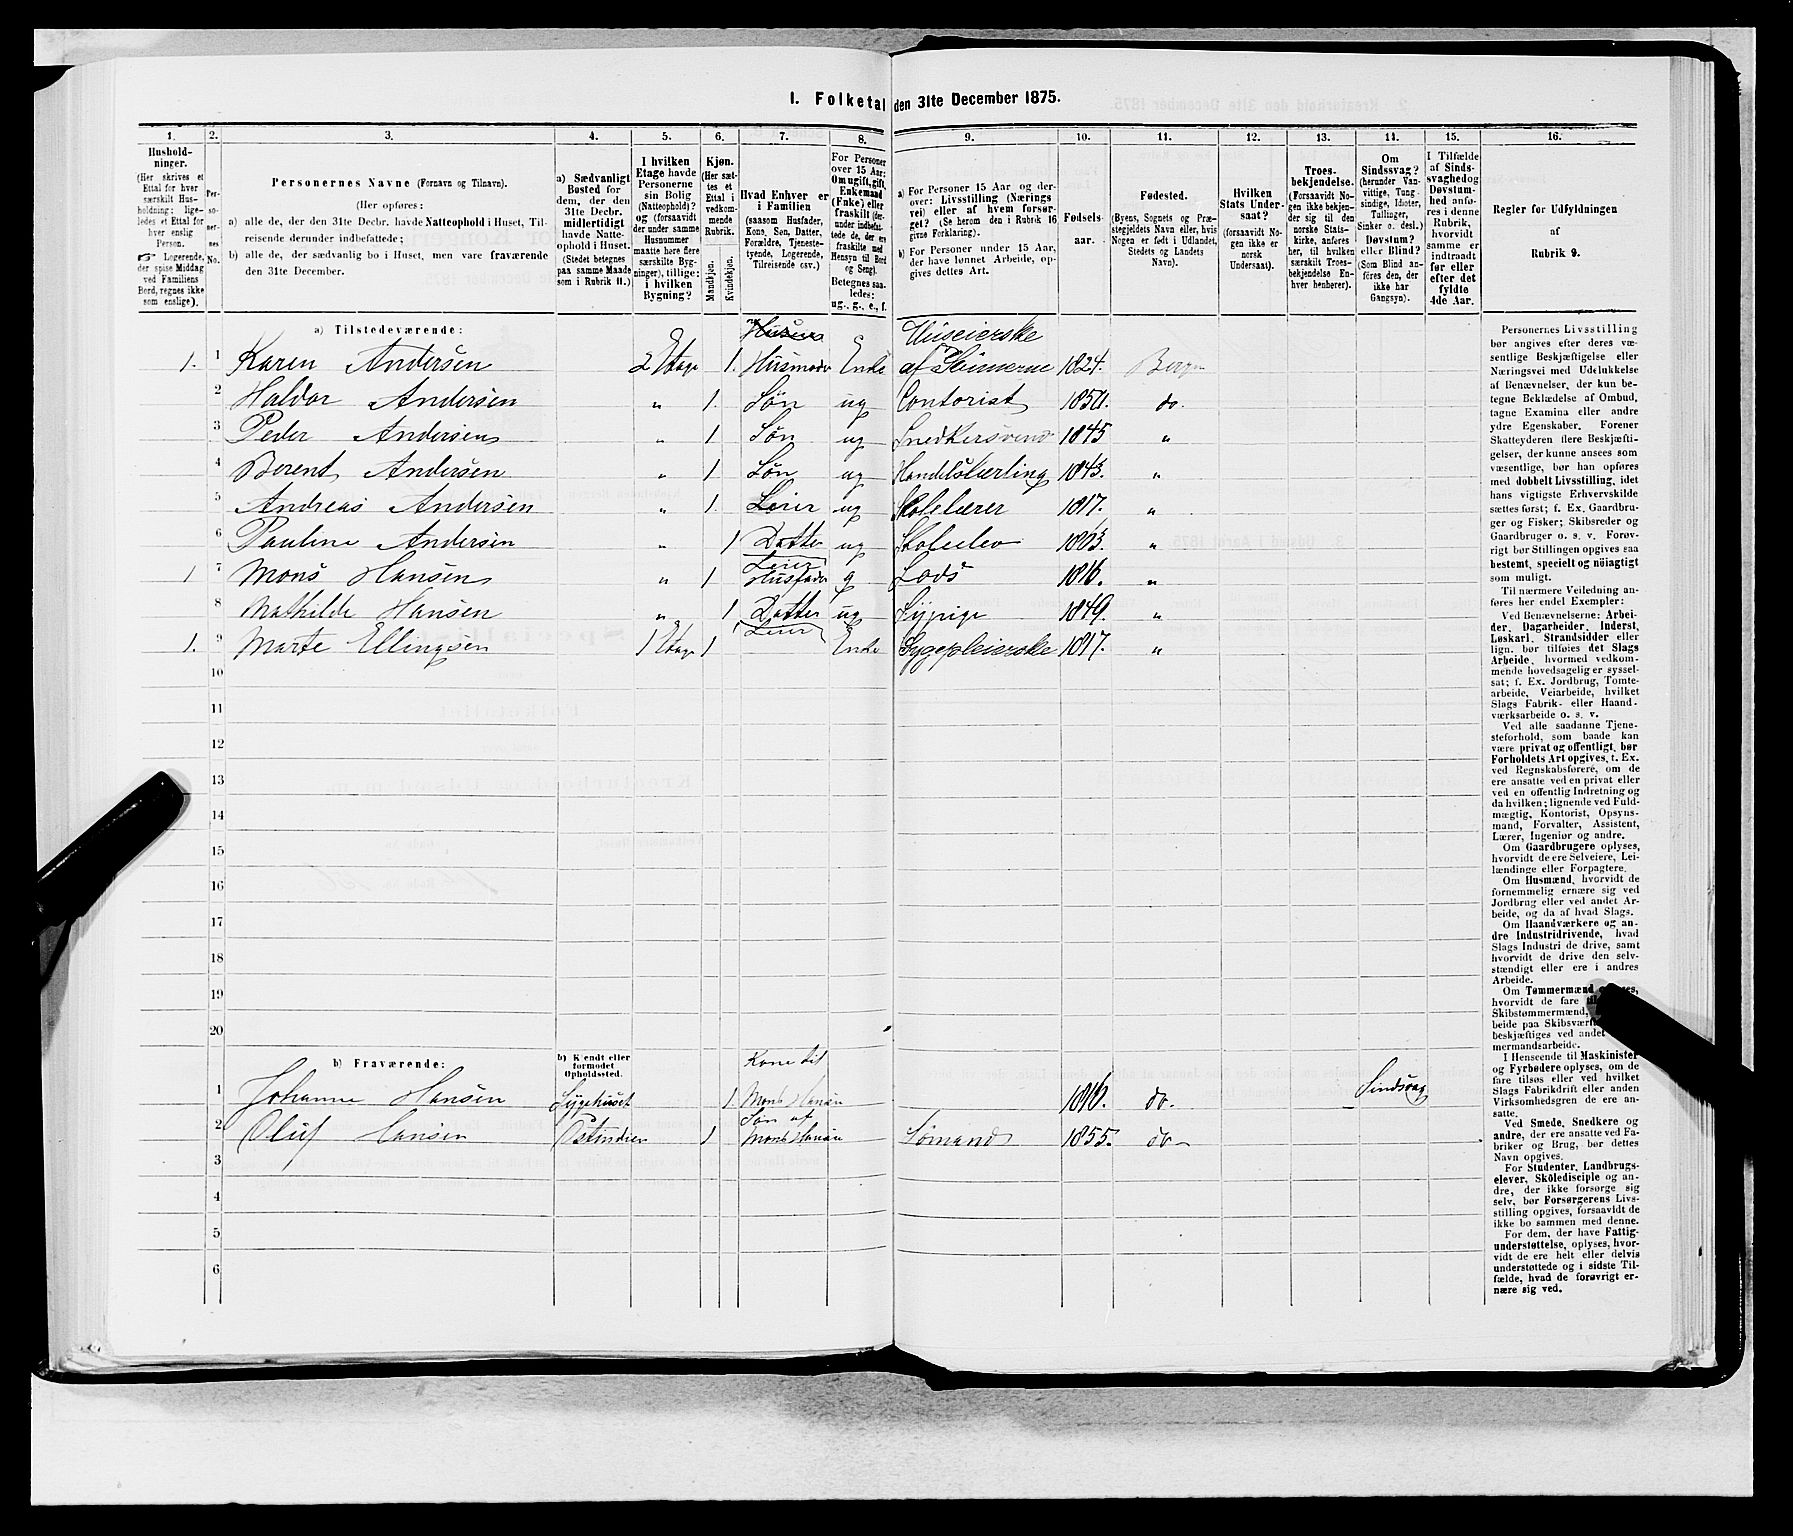 1. Folketal den 31te December 1875.
1. 2. 3. 4. 5. 6. 7. 8. 9. 10. 11. 12. 13. 14. 15. 16.
Hushold-
ninger.
(Her skrives et
Ettal for hver
særskilt Hus-
holdning; lige-
ledes et Ettal for
hver enslig
Person.
☞ Logerende,
der spise Middag
ved Familiens
Bord, regnes ikke
som enslige).
Per-
so-
ner-
nes
No.
Personernes Navne (Fornavn og Tilnavn).
(Her opføres:
a) alle de, der den 31te Decbr. havde Natteophold i Huset, Til-
reisende derunder indbefattede;
b) alle de, der sædvanlig bo i Huset, men vare fraværende
den 31te December.
a) Sædvanligt
Bosted for
dem, der den
31te Decbr.
midlertidigt
havde Natte-
ophold i Huset.
(Stedet betegnes
paa samme Maade
som i Rubrik 11.)
I hvilken
Etage havde
Personerne
sin Bolig
(Natteophold)?
og (forsaavidt
der under samme
Husnummer
maatte høre flere
særskilte Byg-
ninger), tillige:
i hvilken
Bygning?
Kjøn.
(Her sæt-
tes et
Ettal i
vedkom-
mende
Rubrik.
Mandkjøn.
Kvindekjøn.
Hvad Enhver er
i Familien
(saasom Husfader,
Kone, Søn, Datter,
Forældre, Tjeneste-
tyende, Logerende,
Tilreisende osv.)
For Personer
over 15 Aar:
Om ugift, gift,
Enkemand
(Enke) eller
fraskilt (der-
under indbefat-
tede de, der ere
fraskilte med
Hensyn til Bord
og Seng).
Betegnes saa-
ledes:
ug., g., e., f.
a) For Personer 15 Aar og der-
over: Livsstilling (Nærings
vei) eller af hvem forsør-
get? (Se herom den i Rubrik 16
givne Forklaring).
b) For Personer under 15 Aar,
der have lønnet Arbeide, op-
gives dettes Art.
Fødsels-
aar.
Fødested.
(Byens, Sognets og Præ-
stegjeldets Navn eller, hvis
Nogen er født i Udlandet,
Stedets og Landets
Navn).
Hvilken
Stats Under-
saat?
(forsaavidt No-
gen ikke er
norsk
Undersaat).
Troes-
bekjendelse.
(Forsaavidt No-
gen ikke bekjen-
der sig til den
norske Stats-
kirke, anføres
her, til hvilken
særskilt Troes-
bekjendelse En-
hver henhører).
Om
Sindssvag?
(herunder Van-
vittige, Tung-
sindige, Idioter,
Tullinger,
Sinker o. desl.)
Døvstum?
eller Blind?
(Som Blind an-
føres den, der
ikke har
Gangsyn).
I Tilfælde
af Sinds-
svaghed og
Døvstum-
hed anfø-
res i denne
Rubrik,
hvorvidt
samme er
indtraadt
før eller
efter det
fyldte
4de Aar.
Regler før Udfyldningen
af
Rubrik 9.
a) Tilstedeværende:
1. 1 Karen Andersen 2 Etage 1. Husmoder Enke Huseierske 1824. Bergen
2 Haldor Andersen " 1. Søn ug Contorist 1850. do.
3 Peder Andersen " 1 Søn ug Snedkersvend 1845 "
4 Berent Andersen " 1 Søn ug Handelslærling "
5 Andreas Andersen " 1. ug Skolelærer 1817. "
6 Pauline Andersen " 1 Datter ug Skoleelev "
1 7 Mons Hansen " 1 Husfader g Lods 1816. "
8 Mathilde Hansen " 1 Datter ug Sypige 1849. "
1. 9 Marte Ellingsen 1 Etage 1 Enke Sygepleierske 1817. "
10
11
12
13
14
15
16
17
18
19
20
b) Fraværende:
b) Kjendt eller
formodet
Opholdssted.
1 Johanne Hansen Sygehuset 1. Kone til Mons Hansen 1816. do. Sindssvag
2 Oluf Hansen Ostindien 1 Søn af Mons Hansen Sømand 1855. do
3
4
5
6
Personernes Livsstilling
bør angives efter deres væ-
sentlige Beskjæftigelse eller
Næringsvei med Udelukkelse
af Benævnelser, der kun be-
tegne Beklædelse af Ombud,
tagne Examina eller andre
ydre Egenskaber. Forener
Skatteyderen flere Beskjæfti-
gelser, der kunne ansees som
væsentlige, bør han opføres
med dobbelt Livsstilling, idet
hans vigtigste Erhvervskilde
sættes først; f. Ex. Gaardbru-
ger og Fisker; Skibsreder og
Gaardbruger o. s. v. Forøv-
rigt bør Stillingen opgives saa
bestemt, specielt og nøiagtigt
som muligt.
Til nærmere Veiledning an-
føres her endel Exempler:
Ved Benævnelserne: Arbei-
der, Dagarbeider, Inderst,
Løskarl, Strandsidder eller
lign. bør tilføies det Slags
Arbeide, hvormed vedkom-
mende hovedsagelig er syssel-
sat; f. Ex. Jordbrug, Tomte-
arbeide, Veiarbeide, hvilket
Slags Fabrik- eller Haand-
værksarbeide o. s. v.
Ved alle saadanne Tjene-
steforhold, som baade kan
være privat og offentligt, bør
Forholdets Art opgives, t. Ex.
ved Regnskabsførere, om de
ere ansatte ved en privat eller
ved en offentlig Indretning og
da hvilken; lignende ved Fuld-
mægtig, Kontorist, Opsyns-
mand, Forvalter, Assistent,
Lærer, Ingeniør og andre.
Om Gaardbrugere oplyses,
hvorvidt de ere Selveiere, Lei-
lændinge eller Forpagtere.
Om Husmænd, hvorvidt de
fornemmelig ernære sig ved
Jordbrug eller ved andet Ar-
beide, og da af hvad Slags.
Om Haandværkere og an-
dre Industridrivende, hvad
Slags Industri de drive, samt
hvorvidt de drive den selv-
stændigt eller ere i andres
Arbeide.
Om Tømmermænd
hvorvidt de fare
Skibstømmermænd,
beide paa Skibsværf
beskjæftiges ved andet
mermandsarbeide.
I Henseende til Maskinister
og Fyrbødere oplyses, om de
fare tilsøs eller ved hvilket
Slags Fabrikdrift eller anden
Virksomhedsgren de ere an-
satte.
Ved Smede, Snedkere og
andre, der ere ansatte ved Fa-
briker og Brug, bør dettes
Navn opgives.
For Studenter, Landbrugs-
elever, Skoledisciple og an-
dre, der ikke forsørge sig
selv, bør Forsørgerens Livs-
stilling opgives, forsaavidt de
ikke bo sammen med denne.
For dem, der have Fattig-
understøttelse, oplyses, hvor-
vidt de ere helt eller delvis
understøttede og i sidste Til-
fælde, hvad de forøvrigt er-
nære sig ved.